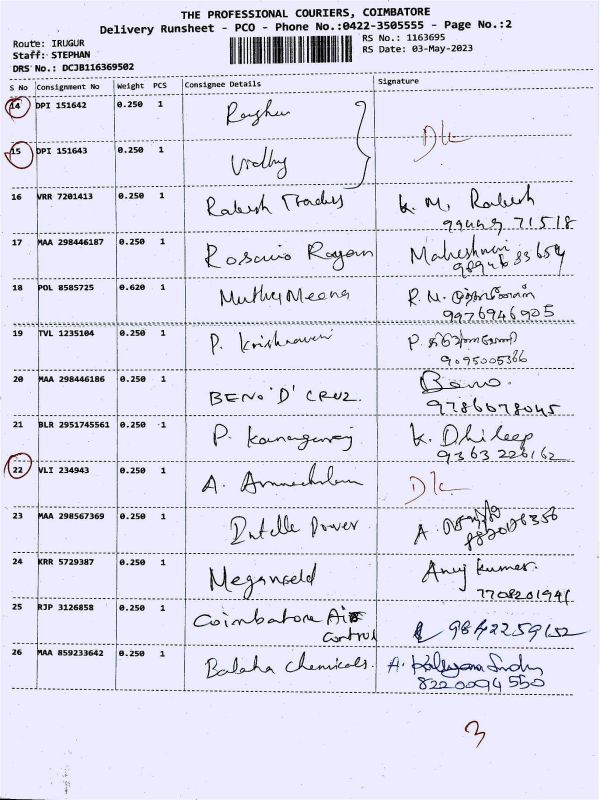 THE PROFESSIONAL COURIERS, COIMBATORE
Delivery Runsheet - PCO - Phone No.:0422-3505555 - Page No.:2
Route: IRUGUR
RS No.: 1163695
Staff: STEPHAN
RS Date: 03-May-2023
DRS No.: DCJB116369502
S No Consignment No Weight PCS Consignee Details Signature
14 DPI 151642 0.250 1
15 DPI 151643 0.250 1
16 VRR 7201413 0.250 1 Rakesh Traders K. M. Rakesh
99449 71518
17 MAA 298446187 0.250 1 Rosario Rayan Maheshwari
18 POL 8585725 0.620 1 Muthu Meena R. M.
9976946905
19 TVL 1235104 0.250 1 P. Krishnaveni P.
9095005366
20 MAA 298446186 0.250 1 BENO 'D' CRUZ. Beno.
9786078045
21 BLR 2951745561 0.250 1 P. Kanagaraj K. Dhileep
9363 226162
22 VLI 234943 0.250 1 A. Arunachalam
23 MAA 298567369 0.250 1 Intelle Power A.
24 KRR 5729387 0.250 1 Anuj Kumar.
7708201941
25 RJP 3126858 0.250 1 Coimbatore Air
Control 9842259152
26 MAA 859233642 0.250 1 Balaha Chemicals. A.
8220094550
3